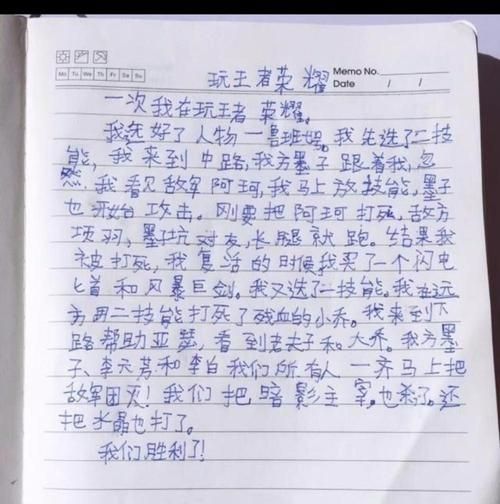 Mo Tu We Th Fr Sa Su
玩王者荣耀
Memo No.
Date / /
一次我在玩王者荣耀。
我选好了人物一鲁班妲。我先选了二技
能,我来到中路,我方墨子跟着我,忽
然,我看见敌军阿珂,我马上放技能,墨子
也开始攻击。刚要把阿珂打死,敌方
项羽,坑对友,长腿就跑。结果我
被打死,我复活的时候我买了一个闪电
匕首和风暴巨剑。我又选了二技能。我在远
方用二技能打死了残血的小乔。我来到下
路帮助亚瑟,看到老夫子和大乔。我方墨
子、李元芳和李白我们所有人一齐马上把
敌军团灭!我们把暗影主宰,也杀了。还
把水晶也打了。
我们胜利了!